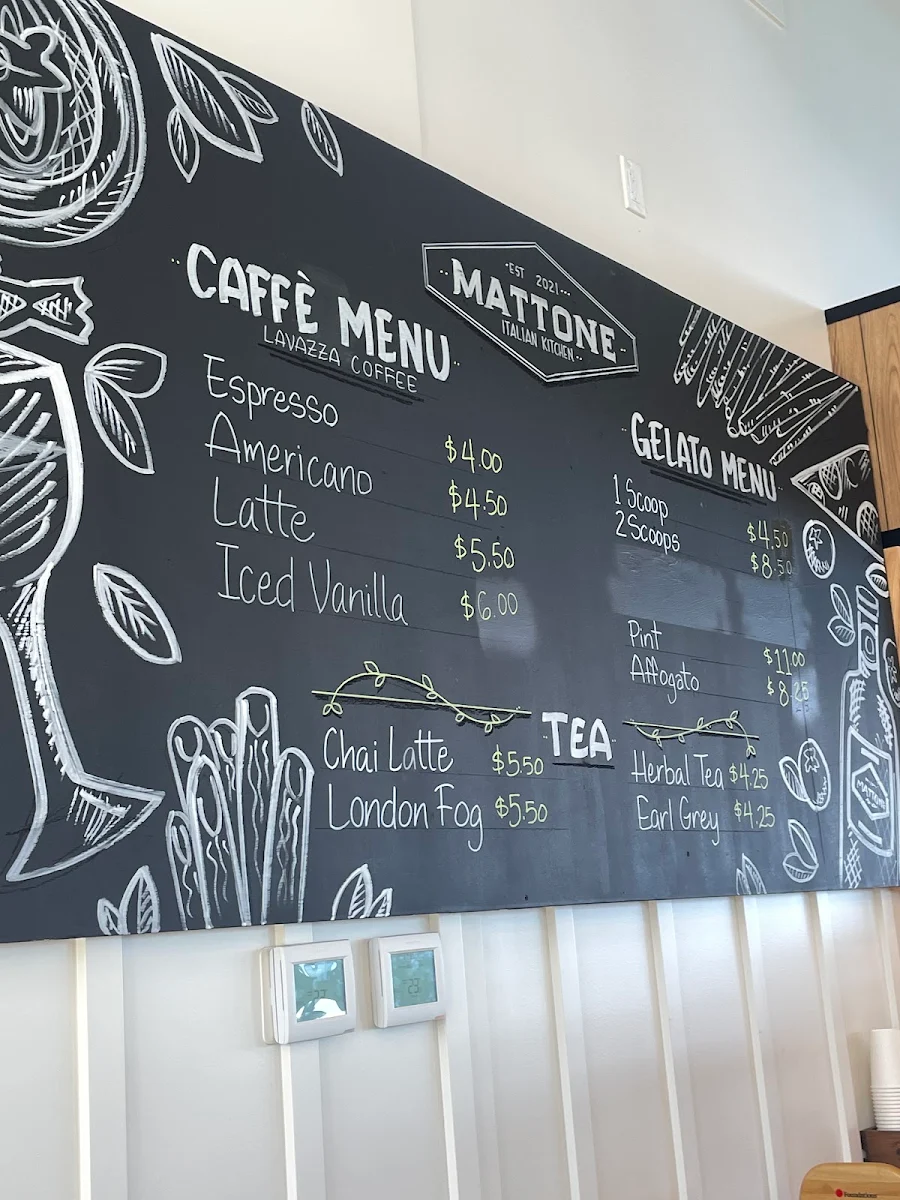 CAFFÈ MENU
LAVAZZA COFFEE
Espresso $4.00
Americano $4.50
Latte $5.50
Iced Vanilla $6.00
·EST 2021·
MATTONE
ITALIAN KITCHEN
GELATO MENU
1 Scoop $4.50
2 Scoops $8.50
Pint $11.00
Affogato $8.25
TEA
Chai Latte $5.50
London Fog $5.50
Herbal Tea $4.25
Earl Grey $4.25
MATTONE